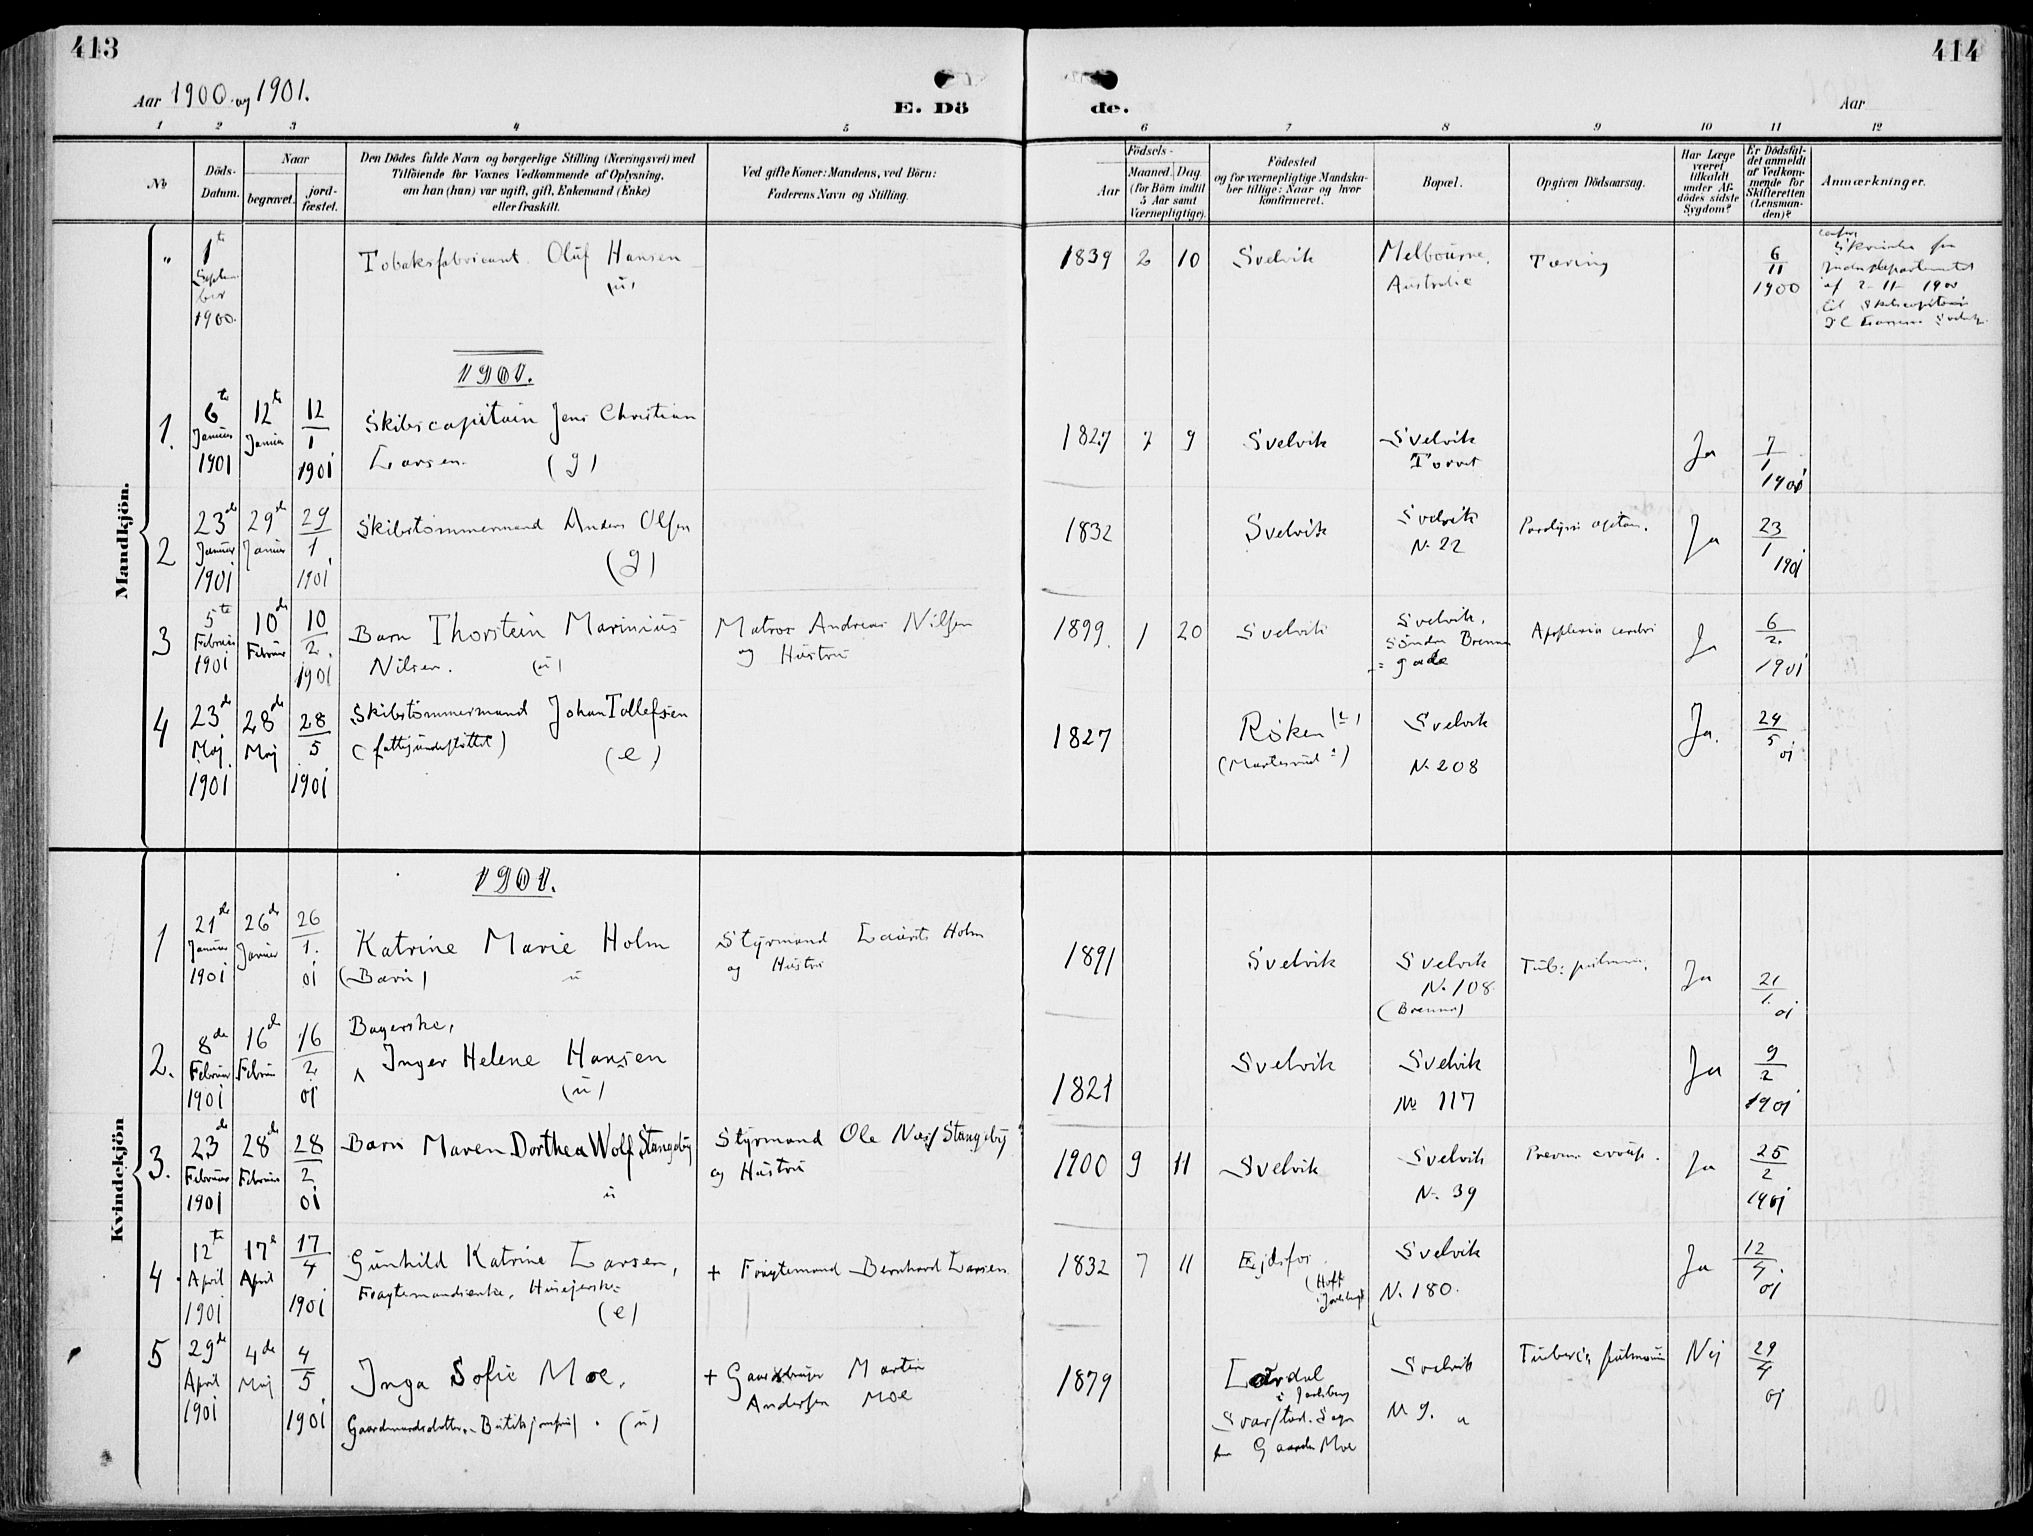 413
414
Aar 1900 og 1901.
E. Dö
de.
Aar
1 2 3 4 5 6 7 8 9 10 11 12
No
Döds-
Datum.
Naar
begravet.
jord-
fæstet.
Den Dödes fulde Navn og borgerlige Stilling (Næringsvei) med
Tilföiende for Voxnes Vedkommende af Oplysning,
om han (hun) var ugift, gift, Enkemand (Enke)
eller fraskilt.
Ved gifte Koner: Mandens, ved Börn:
Faderens Navn og Stilling.
Födsels-
Aar
Maaned. Dag.
(for Börn indtil
5 Aar samt
Værnepligtige).
Födested
og for værnepligtige Mandska-
ber tillige: Naar og hvor
konfirmeret.
Bopæl.
Opgiven Dödsaarsag.
Har Læge
været
tilkaldt
under Af-
dödes sidste
Sygdom?
Er Dödsfal-
det anmeldt
af Vedkom-
mende for
Skifteretten
(Lensman-
den)?
Anmærkninger.
Mandkjön.
" 1te Septem-
ber
1900.
Tobaksfabricant Oluf Hansen
(ū)
1839 2 10 Svelvik
Melbourne,
Australie
Tæring
6/11
1900
Skrivelse fra
af 2-11-1900
til Skibscapitain
1901.
1. 6te Januar 1901
12te Januar
12/1 1901
Skibscapitain Jens Christian
Larsen. (g)
1827 7 9 Svelvik
Svelvik
Torvet
Ja
7/1 1901
2 23de Januar 1901
29de Januar
29/1 1901
Skibstömmermand Anders Olsen
(g)
1832 Svelvik
Svelvik
N. 22
Ja
23/1 1901
3 5te Februar 1901
10de Februar
10/2. 1901
Barn Thorstein Marinius
Nilsen. (ū)
Matros Andreas Nilsen
og Hustru
1899. 1 20 Svelvik
Svelvik,
Söndre Brenna
gade
Apoplexia cerebri
Ja
6/2. 1901
4 23de Maj 1901
28de Maj
28/5 1901
Skibstömmermand Johan Tollefsen
(fattigunderstöttet) (e)
1827
Röken
Svelvik
N. 208
Ja.
24/5 01
Kvindekjön
1901.
1 21de Januar 1901
26de Januar
26/1. 01
Katrine Marie Holm
(Barn) ū
Styrmand Laurits Holm
og Hustru
1891 Svelvik
Svelvik
N. 108
(Brenna)
Ja
21/1. 01
2. 8de Februar 1901
16de Februar
16/2 01
Bagerske,
Inger Helene Hansen
(ū)
1821 Svelvik
Svelvik
No 117
Ja
9/2 1901
3. 23de Februar 1901
28de Februar
28/2 01
Barn Maren Dorthea Wolf Stangeby
ū
Styrmand Ole Næss Stangeby
og Hustru
1900 9 11 Svelvik
Svelvik
N. 39
Ja
25/2 1901
4. 12te April 1901
17e April
17/4 1901
Gunhild Katrine Larsen,
Fragtemandsenke, Husejerske
(e)
+ Fragtemand Bernhard Larsen
1832 7 11 Ejdsfos
(Hoff
Jarlsberg)
Svelvik
N. 180.
Ja
12/4. 01
5 29de April 1901
4de Maj
4/5 1901
Inga Sofie Moe,
Gaardmandsdatter, Butikjomfru. (ū)
+ Gaardbruger Martin
Andersen Moe
1879 Lardal
i Jarlsberg
Svarstad Sogn
Gaarden Moe
Svelvik
N 9. a
Nej
29/4 01